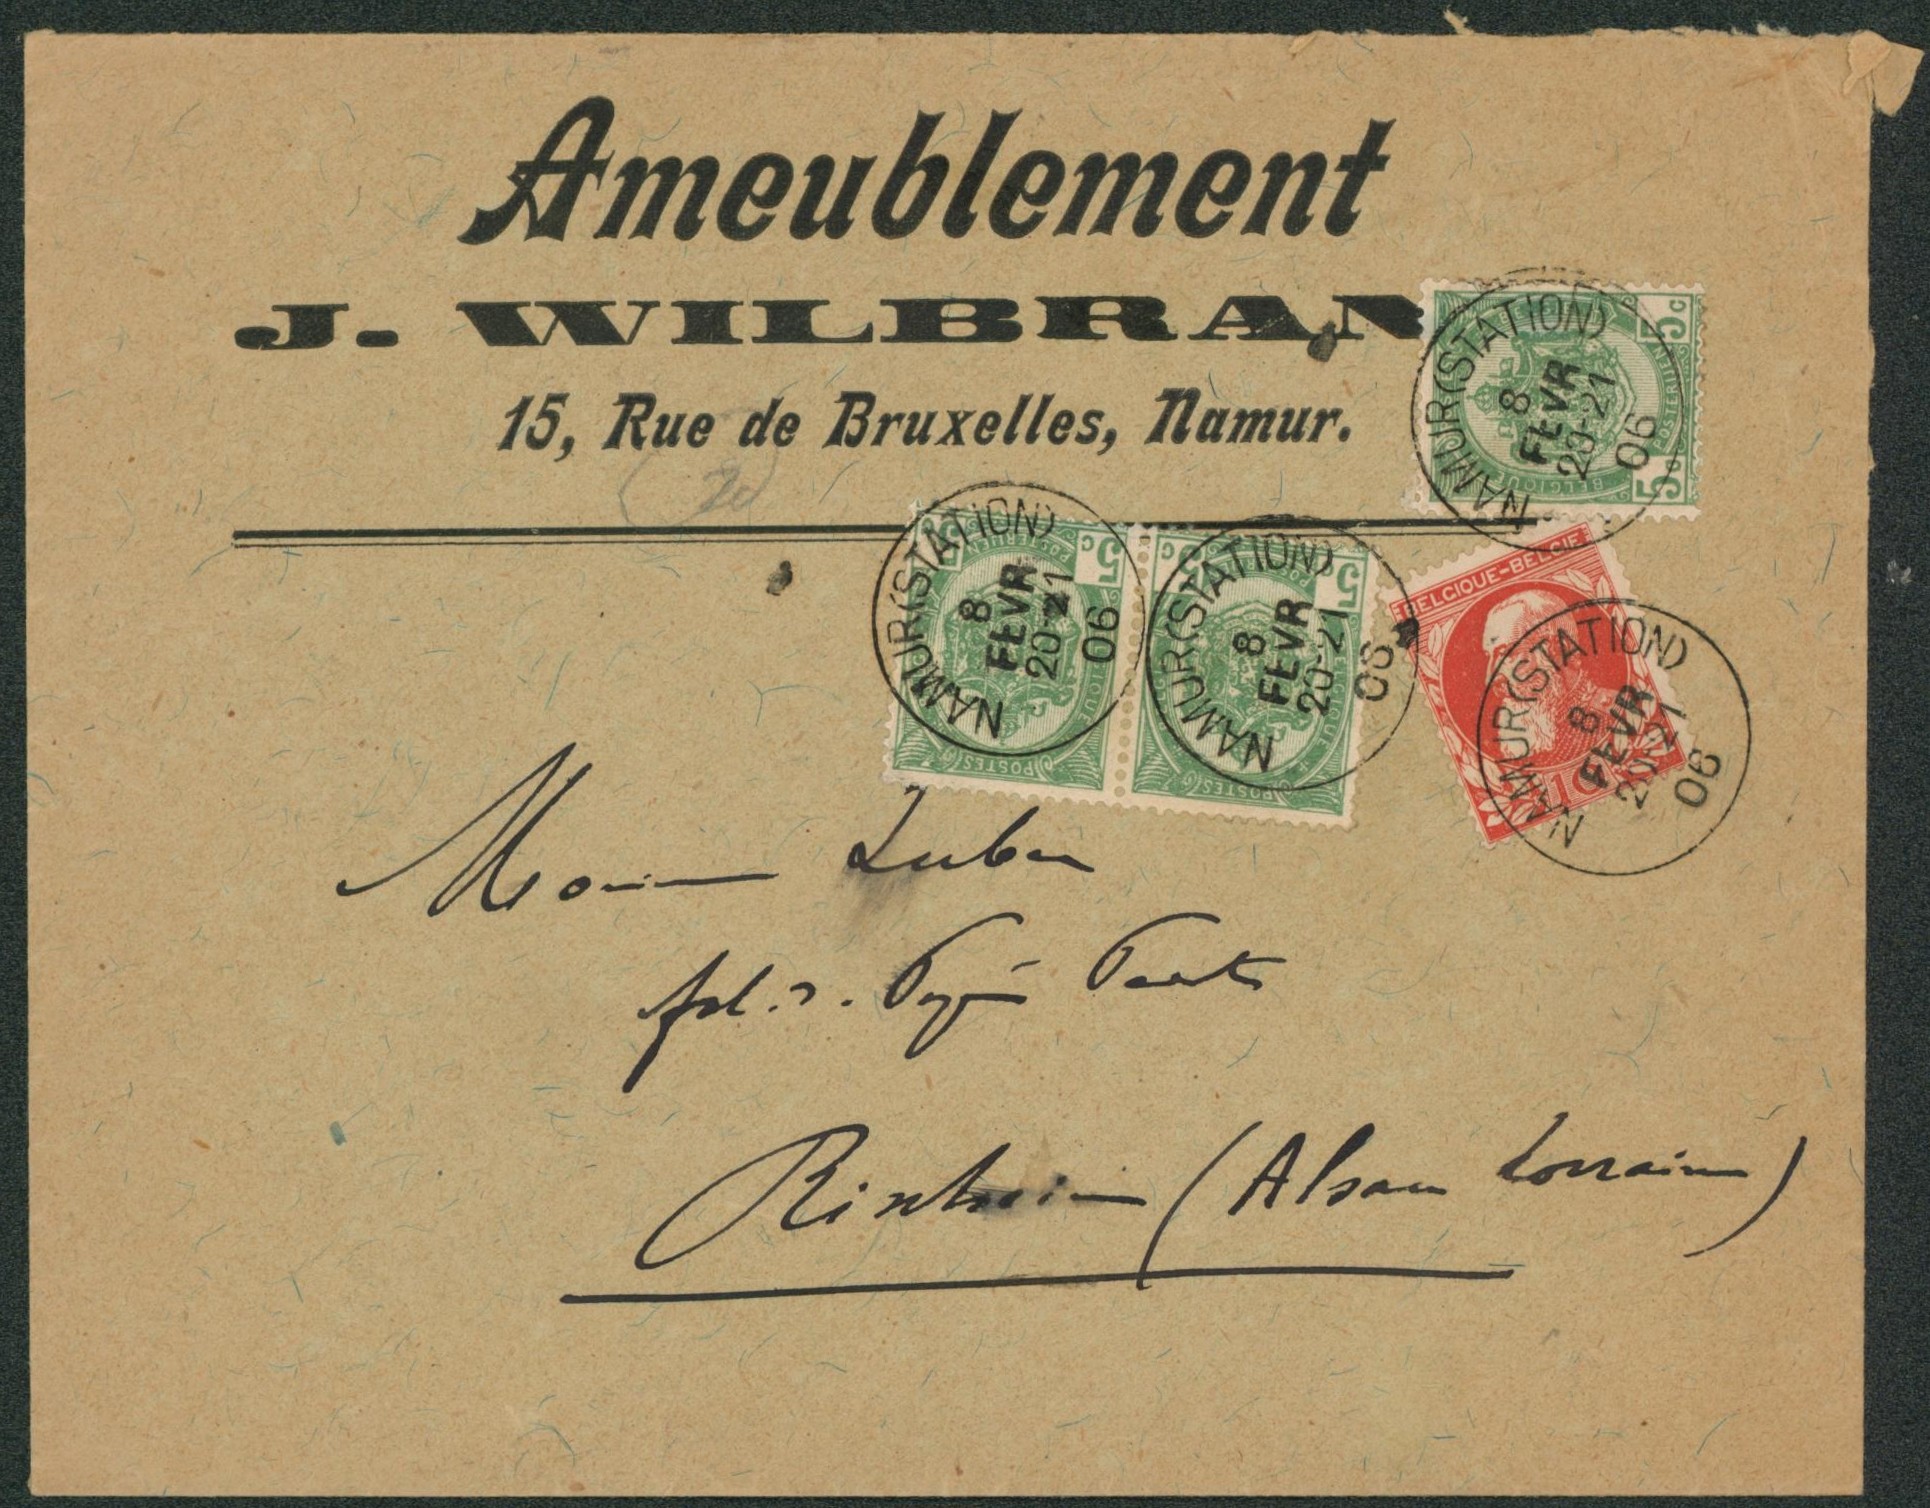 Ameublement
J. WILBRAN
15, Rue de Bruxelles, Namur.
20
5c 5c
BELGIQUE
NAMUR (STATION)
8
FEVR
20-21
06
5c
POSTES
NAMUR (STATION)
8
FEVR
20-21
06
5c
POSTES
NAMUR (STATION)
8
FEVR
20-21
06
BELGIQUE-BELGIE
10
NAMUR (STATION)
8
FEVR
20-21
06
Monsieur
Rixheim (Alsace Lorraine)